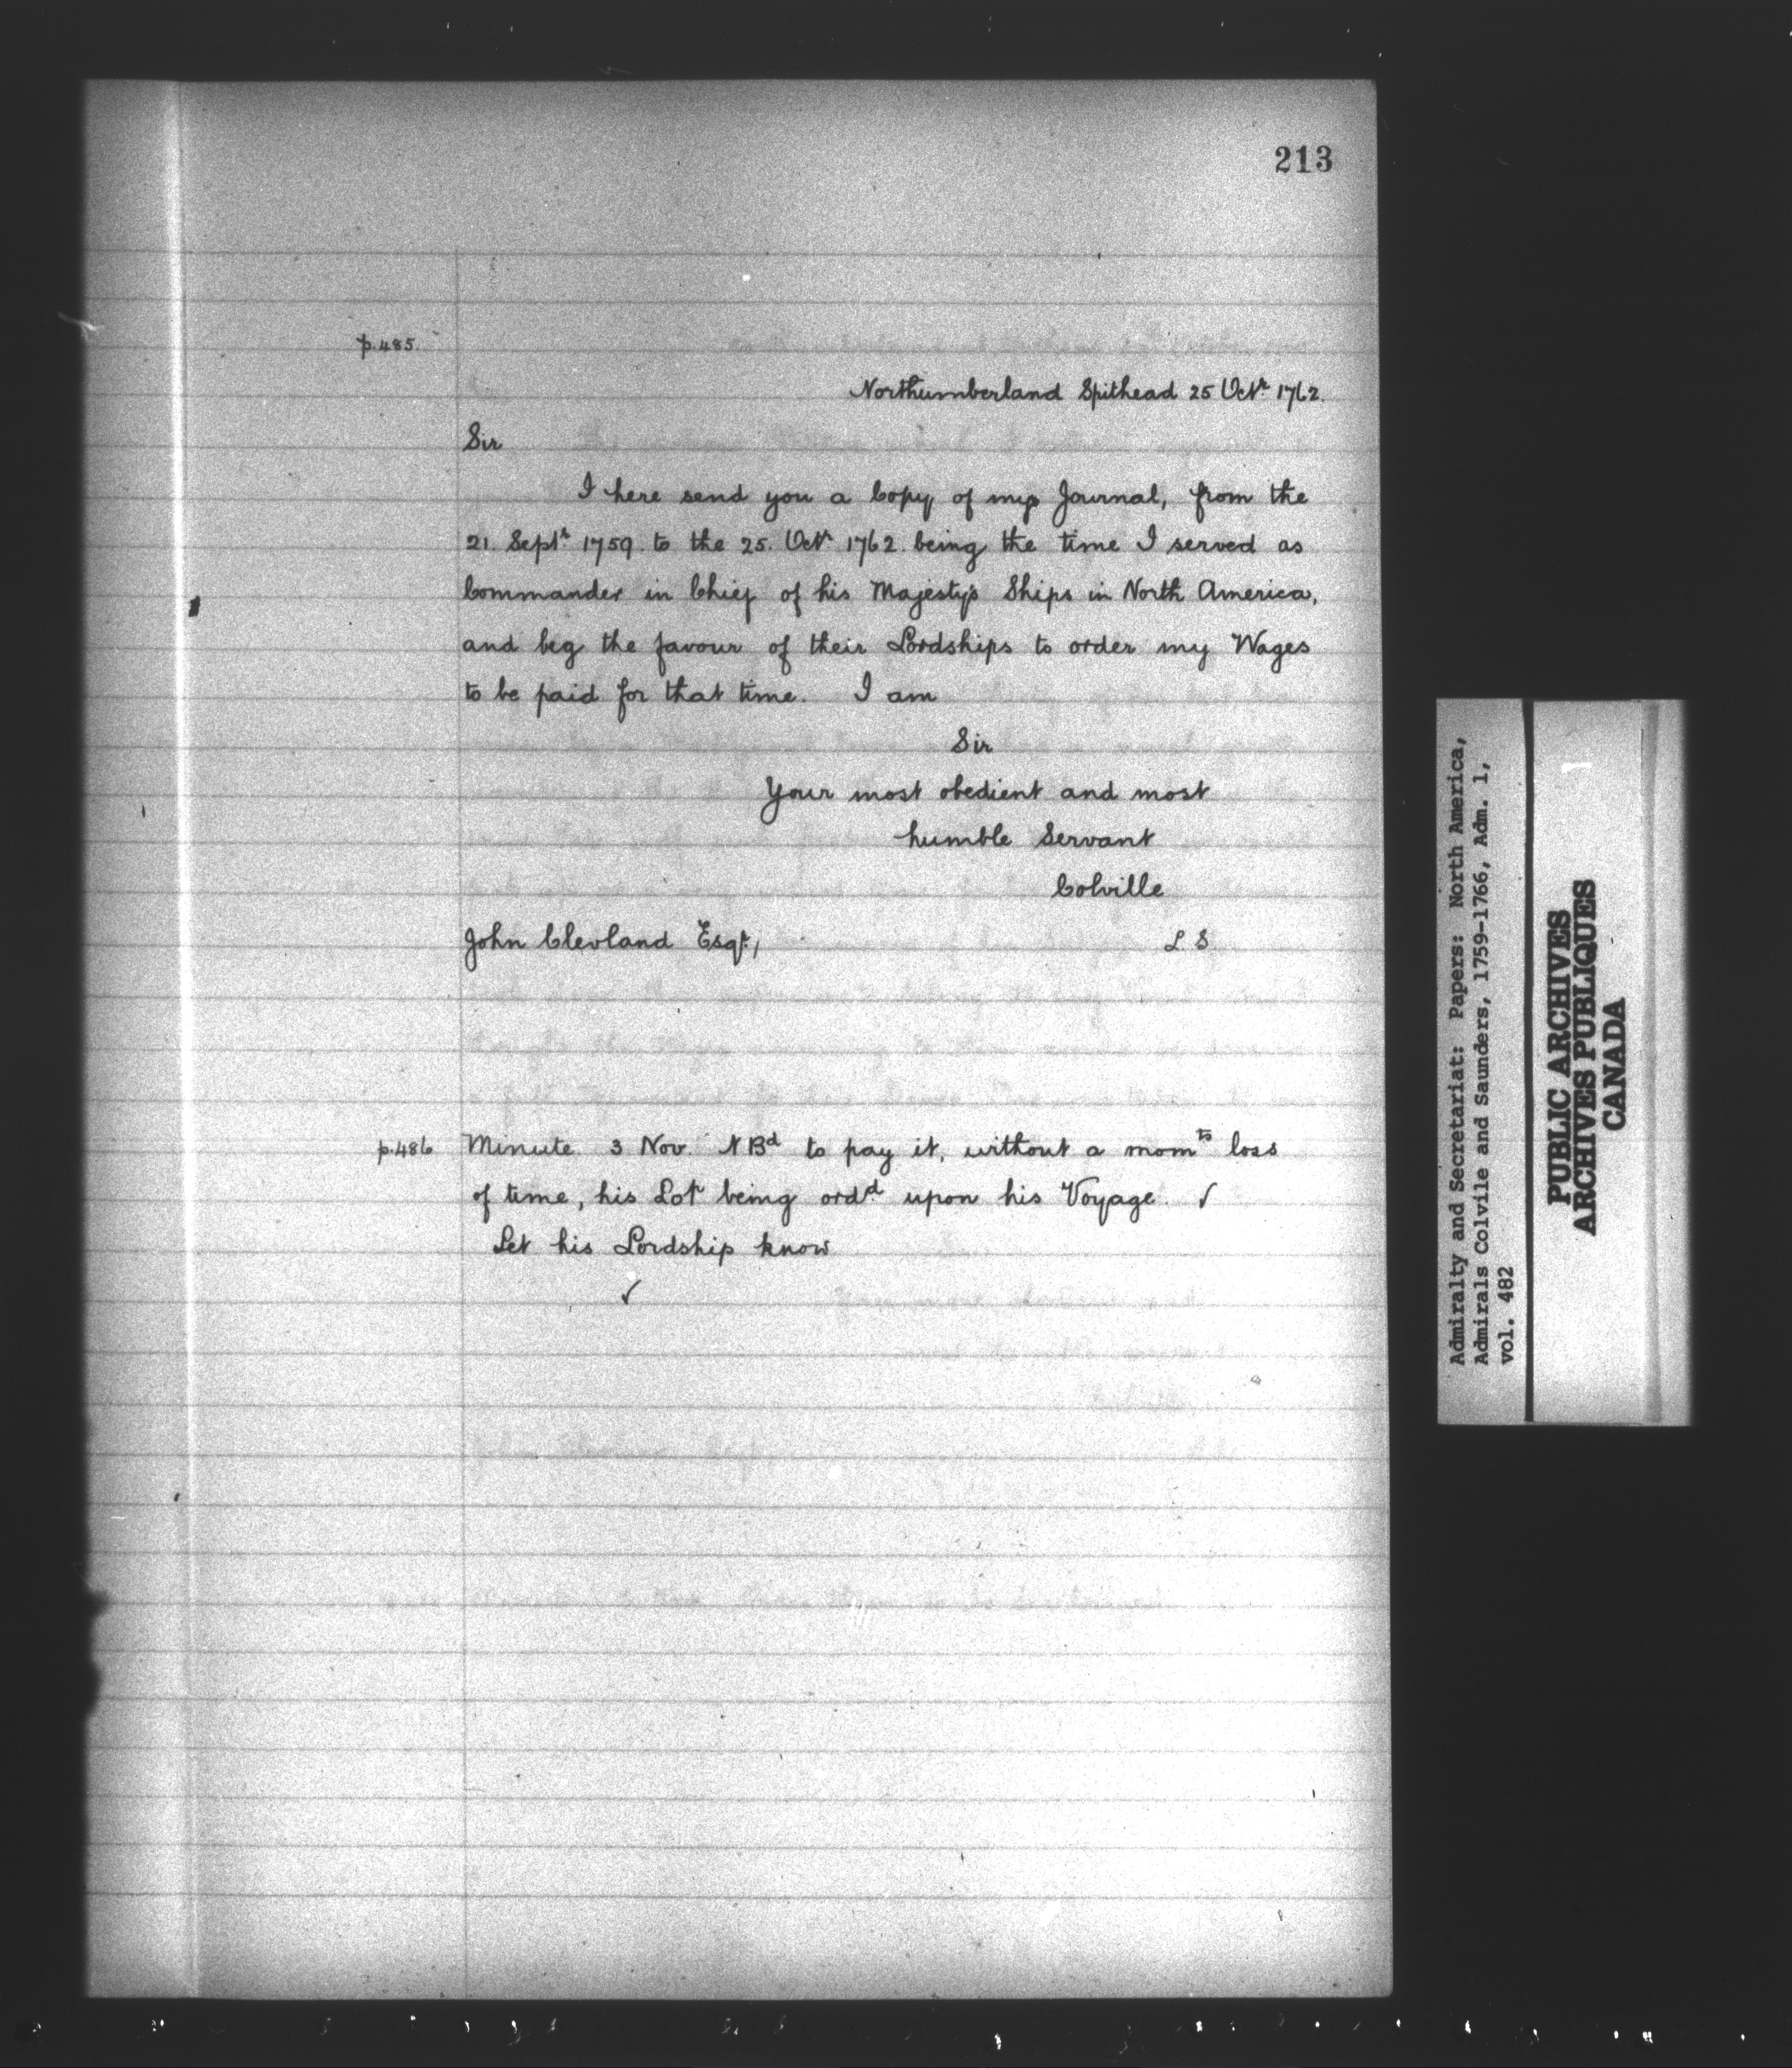 213
p. 485.
Northumberland Spithead 25 Octr. 1762.
Sir
I here send you a Copy of my Journal, from the
21. Septr. 1759. to the 25. Octr. 1762. being the time I served as
Commander in Chief of his Majesty's Ships in North America,
and beg the favour of their Lordships to order my Wages
to be paid for that time. I am
Sir
Your most obedient and most
humble Servant
Colville
John Clevland Esqr.,
L S.
p. 486 Minute. 3 Nov. N Bd to pay it, without a momts loss
of time, his Lop being ordd. upon his Voyage. ✓
Let his Lordship know
✓
Admiralty and Secretariat: Papers: North America,
Admirals Colvile and Saunders, 1759-1766, Adm. 1,
vol. 482
PUBLIC ARCHIVES
ARCHIVES PUBLIQUES
CANADA